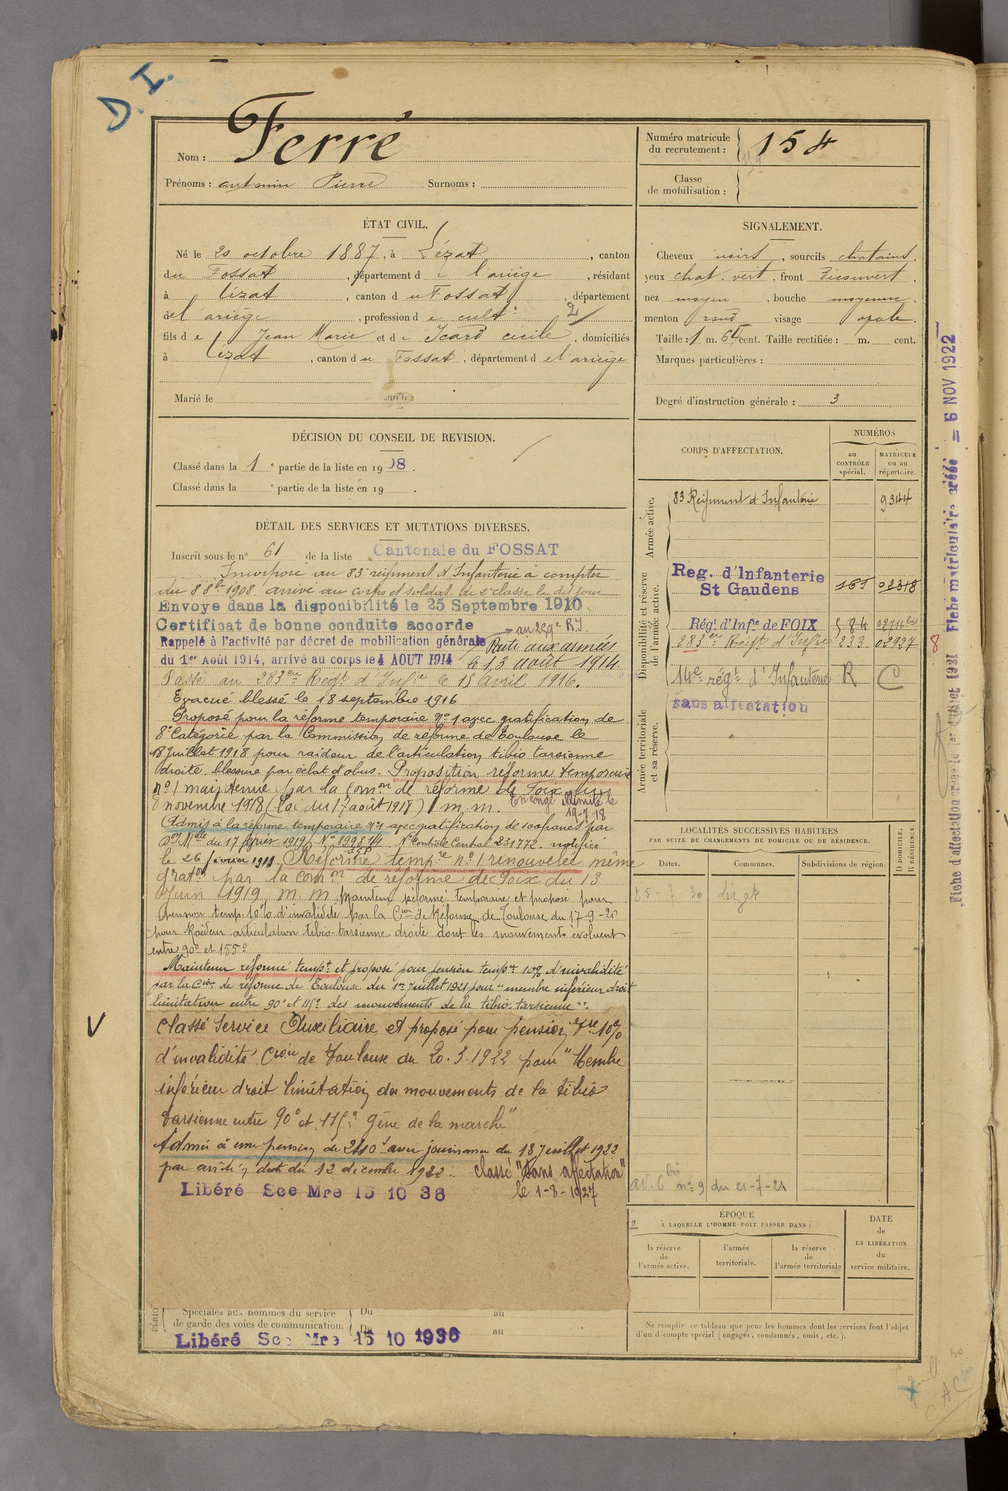 D. I.
Nom : Ferré
Prénoms : antonin Pierre Surnoms :
Numéro matricule
du recrutement : 154
Classe
de mobilisation :
ÉTAT CIVIL.
Né le 20 octobre 1887, à Lézat, canton
du Fossat, département de l'ariège, résidant
à Lézat, canton du Fossat, département
de l ariège, profession de cult 2
fils de Jean Marie et de Icard cécile, domiciliés
à Lézat, canton du Fossat, département de l ariège
Marié le
SIGNALEMENT.
Cheveux noirs, sourcils chatains,
yeux chat. vert, front Découvert
nez moyen, bouche moyenne,
menton rond visage ovale.
Taille : 1 m. 65 cent. Taille rectifiée : m. cent.
Marques particulières :
Degré d'instruction générale : 3
DÉCISION DU CONSEIL DE REVISION.
Classé dans la 1e partie de la liste en 1908.
Classé dans la e partie de la liste en 19 .
DÉTAIL DES SERVICES ET MUTATIONS DIVERSES.
Inscrit sous le n° 61 de la liste Cantonale du FOSSAT
Incorporé au 83e régiment d'Infanterie à compter
du 8 8bre 1908, arrivé au corps et soldat de 2e classe le dit jour
Envoyé dans la disponibilité le 25 Septembre 1910
Certificat de bonne conduite accorde
Rappelé à l'activité par décret de mobilisation générale
du 1er Août 1914, arrivé au corps le 4 AOUT 1914
Parti aux armées
le 13 août 1914.
Passé au 283me Regt d'Infie le 15 avril 1916.
Evacué blessé le 18 septembre 1916
Proposé pour la réforme temporaire n° 1 avec gratification de
8e Catégorie par la Commission de réforme de Toulouse le
18 Juillet 1918 pour raideur de l'articulation tibio tarsienne
droite, blessure par éclat d'obus. Proposition réforme temporaire
n° 1 maintenue par la Comon de réforme de Foix du
novembre 1918 (Loi du 17 août 1918) m. m. En congé illimité le
19-7-18
Admis à la réforme temporaire n° 1 avec gratification de 100 francs par
du 17 février 1919 N° Centrale Central 231772. notifiée
le 26 février 1919 Réforme tempre n° 1 renouvelée même
graton par la comon de réforme de Foix du 13
Juin 1919 m. m. Maintenu réformé temporaire et proposé pour
pension temp. 10% d'invalidité par la Cion de Réforme de Toulouse du 17-9-20
pour Raideur articulation tibio-tarsienne droite dont les mouvements évoluent
entre 90° et 155°
Maintenu réformé tempt et proposé pour pension tempre 10% d'invalidité
par la Cion de réforme de Toulouse du 1er Juillet 1921 pour "membre inférieur droit
limitation entre 90° et 115° des mouvements de la tibio tarsienne".
Classé Service Auxiliaire et proposé pour pension tre 10%
d'invalidité Cron de Toulouse du 20.3.1922 pour "Membre
inférieur droit limitation des mouvements de la tibio
tarsienne entre 90° et 115° gêne de la marche"
Admis à une pension de 240f avec jouissance du 18 Juillet 1922
par arrêté en date du 12 décembre 1922. Classé "Sans affectation"
le 1-8-1927
Libéré See Mre 15 10 36
Spéciales aux hommes du service
de garde des voies de communication. Du au
Du au
Libéré See Mre 15 10 1936
CORPS D'AFFECTATION.
NUMÉROS
au
CONTRÔLE
spécial.
MATRICULE
ou au
répertoire.
Armée active.
83 Régiment d'Infanterie 9344
Disponibilité et réserve
de l'armée active.
Reg. d'Infanterie
St Gaudens 165 02318
Régt d'Infie de FOIX 584
283me Regt d'Infie 233 02927
8
14e régt d'Infanterie R C
sans affectation
Armée territoriale
et sa réserve.
LOCALITÉS SUCCESSIVES HABITÉES
PAR SUITE DE CHANGEMENTS DE DOMICILE OU DE RÉSIDENCE.
Dates. Communes. Subdivisions de région. D DOMICILE. R RÉSIDENCE.
25-7-30 Lézat
av. 6 bis n° 9 du 21-7-21
ÉPOQUE
À LAQUELLE L'HOMME DOIT PASSER DANS :
la réserve
de
l'armée active.
l'armée
territoriale.
la réserve
de
l'armée territoriale
DATE
de
LA LIBÉRATION
du
service militaire.
Ne remplir ce tableau que pour les hommes dont les services font l'objet
d'un décompte spécial (engagés, condamnés, omis, etc.).
C A C
Fiche matriculaire créée — 6 NOV 1922